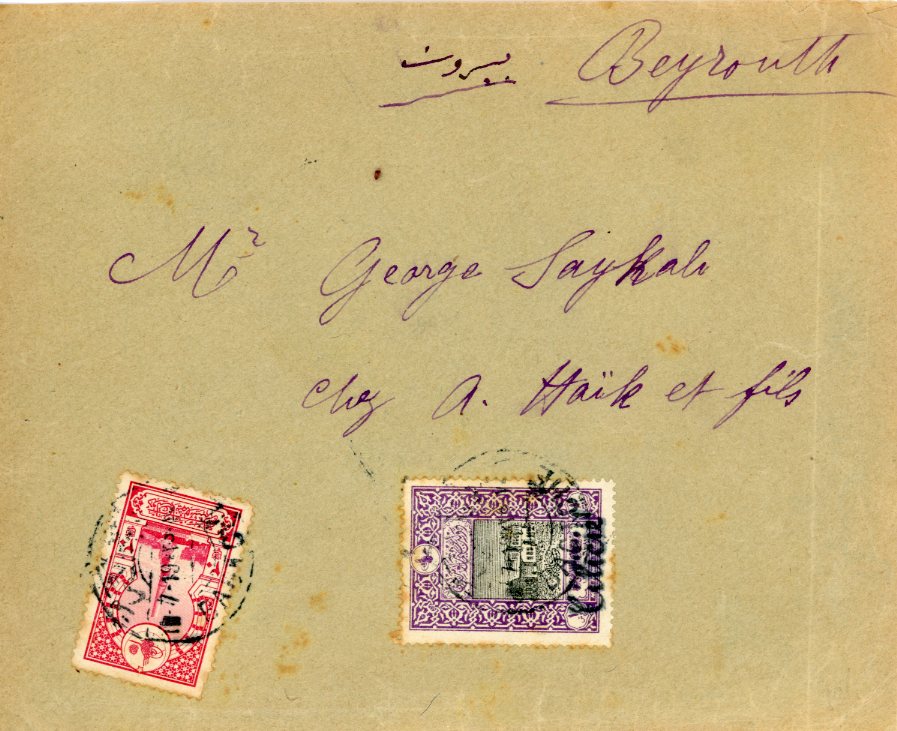 بيروت Beyrouth
Mr George Saykali
chez A. Haïk et fils